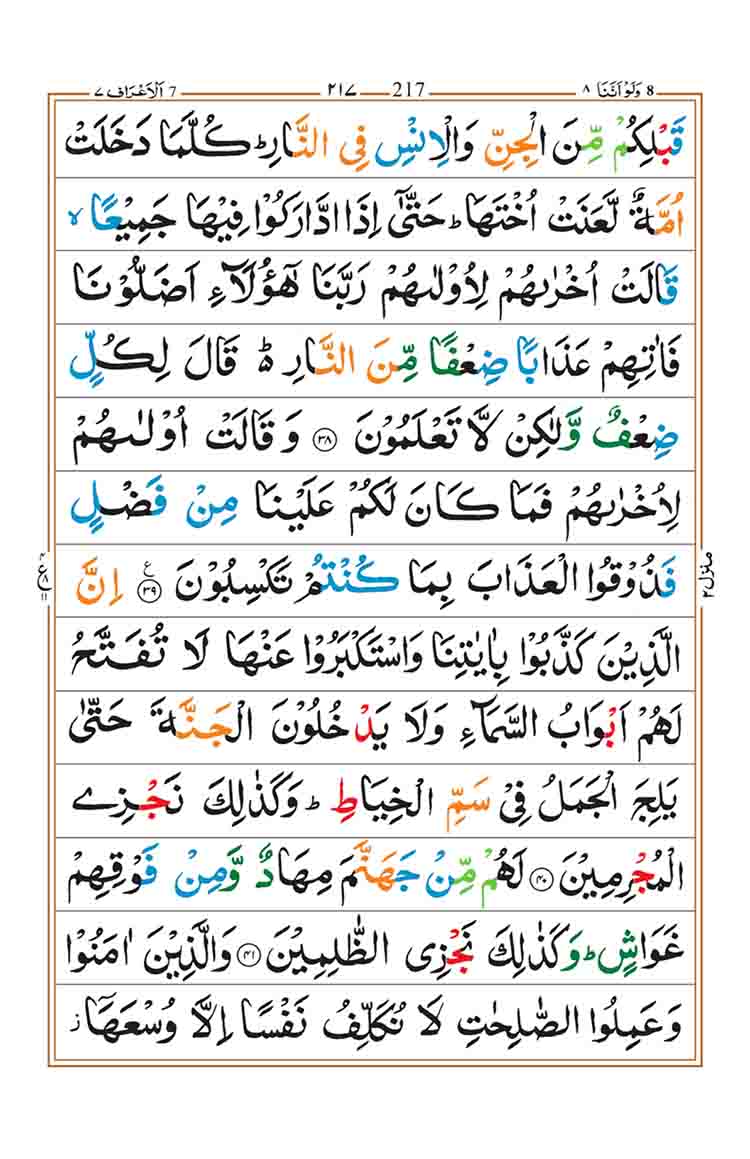 8 وَلَوْ اَنَّنَا ٨ 217 ٢١٧ 7 اَلْاَعْرَاف ٧
قَبْلِكُمْ مِّنَ الْجِنِّ وَالْاِنْسِ فِى النَّارِ ؕ كُلَّمَا دَخَلَتْ
اُمَّةٌ لَّعَنَتْ اُخْتَهَا ؕ حَتّٰٓى اِذَا ادَّارَكُوْا فِيْهَا جَمِيْعًا ۙ
قَالَتْ اُخْرٰىهُمْ لِاُوْلٰىهُمْ رَبَّنَا هٰٓؤُلَآءِ اَضَلُّوْنَا
فَاٰتِهِمْ عَذَابًا ضِعْفًا مِّنَ النَّارِ ۬ؕ قَالَ لِكُلٍّ
ضِعْفٌ وَّلٰكِنْ لَّا تَعْلَمُوْنَ ﴿٣٨﴾ وَقَالَتْ اُوْلٰىهُمْ
لِاُخْرٰىهُمْ فَمَا كَانَ لَكُمْ عَلَيْنَا مِنْ فَضْلٍ
فَذُوْقُوا الْعَذَابَ بِمَا كُنْتُمْ تَكْسِبُوْنَ ﴿٣٩﴾ ع اِنَّ
الَّذِيْنَ كَذَّبُوْا بِاٰيٰتِنَا وَاسْتَكْبَرُوْا عَنْهَا لَا تُفَتَّحُ
لَهُمْ اَبْوَابُ السَّمَآءِ وَلَا يَدْخُلُوْنَ الْجَنَّةَ حَتّٰى
يَلِجَ الْجَمَلُ فِىْ سَمِّ الْخِيَاطِ ؕ وَكَذٰلِكَ نَجْزِى
الْمُجْرِمِيْنَ ﴿٤٠﴾ لَهُمْ مِّنْ جَهَنَّمَ مِهَادٌ وَّمِنْ فَوْقِهِمْ
غَوَاشٍ ؕ وَكَذٰلِكَ نَجْزِى الظّٰلِمِيْنَ ﴿٤١﴾ وَالَّذِيْنَ اٰمَنُوْا
وَعَمِلُوا الصّٰلِحٰتِ لَا نُكَلِّفُ نَفْسًا اِلَّا وُسْعَهَاۤ ز
منزل ٢
ع ٤ ٨ ١١